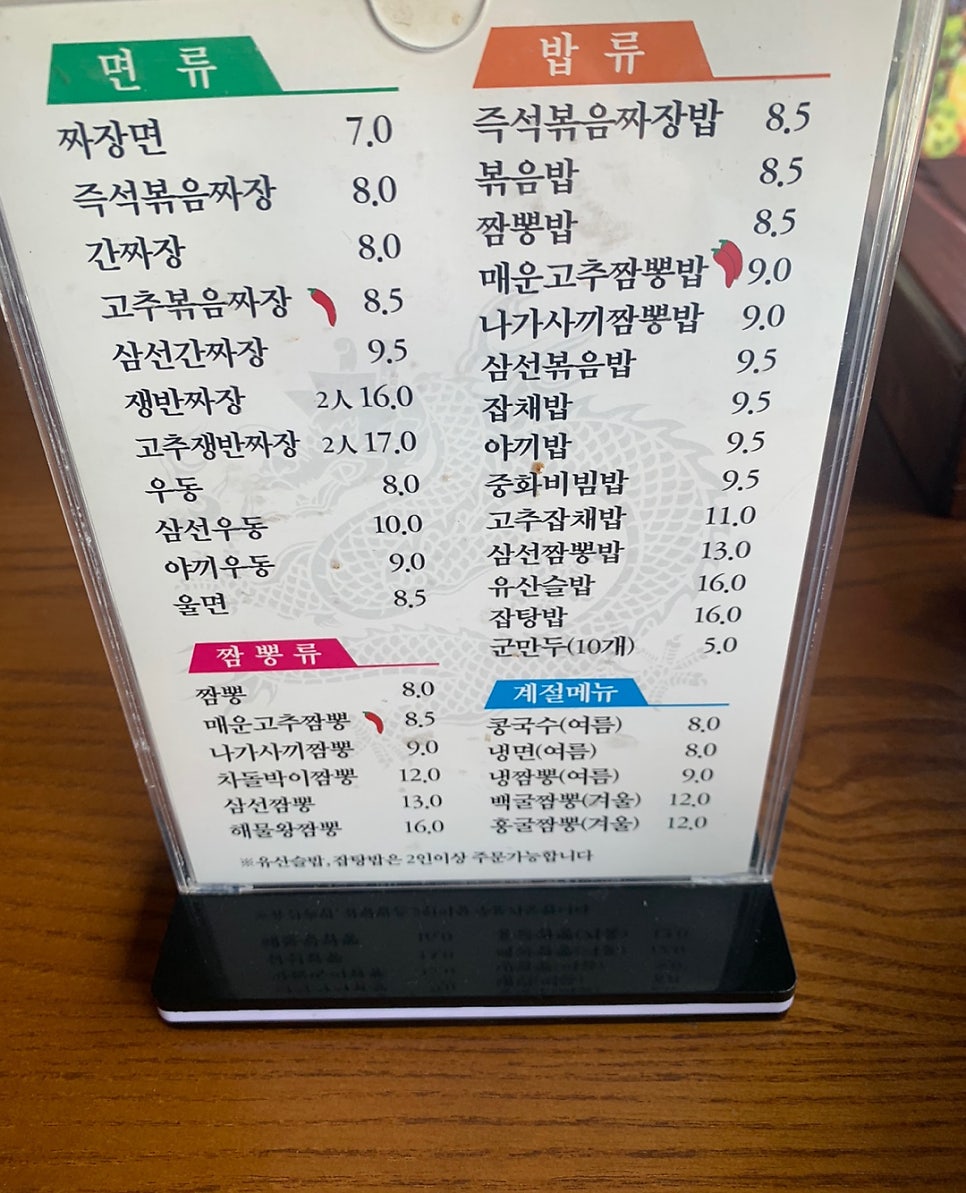 면 류
짜장면 7.0
즉석볶음짜장 8.0
간짜장 8.0
고추볶음짜장 8.5
삼선간짜장 9.5
쟁반짜장 2人 16.0
고추쟁반짜장 2人 17.0
우동 8.0
삼선우동 10.0
야끼우동 9.0
울면 8.5
짬 뽕 류
짬뽕 8.0
매운고추짬뽕 8.5
나가사끼짬뽕 9.0
차돌박이짬뽕 12.0
삼선짬뽕 13.0
해물왕짬뽕 16.0
밥 류
즉석볶음짜장밥 8.5
볶음밥 8.5
짬뽕밥 8.5
매운고추짬뽕밥 9.0
나가사끼짬뽕밥 9.0
삼선볶음밥 9.5
잡채밥 9.5
야끼밥 9.5
중화비빔밥 9.5
고추잡채밥 11.0
삼선짬뽕밥 13.0
유산슬밥 16.0
잡탕밥 16.0
군만두(10개) 5.0
계절메뉴
콩국수(여름) 8.0
냉면(여름) 8.0
냉짬뽕(여름) 9.0
백굴짬뽕(겨울) 12.0
홍굴짬뽕(겨울) 12.0
※유산슬밥, 잡탕밥은 2인이상 주문가능합니다